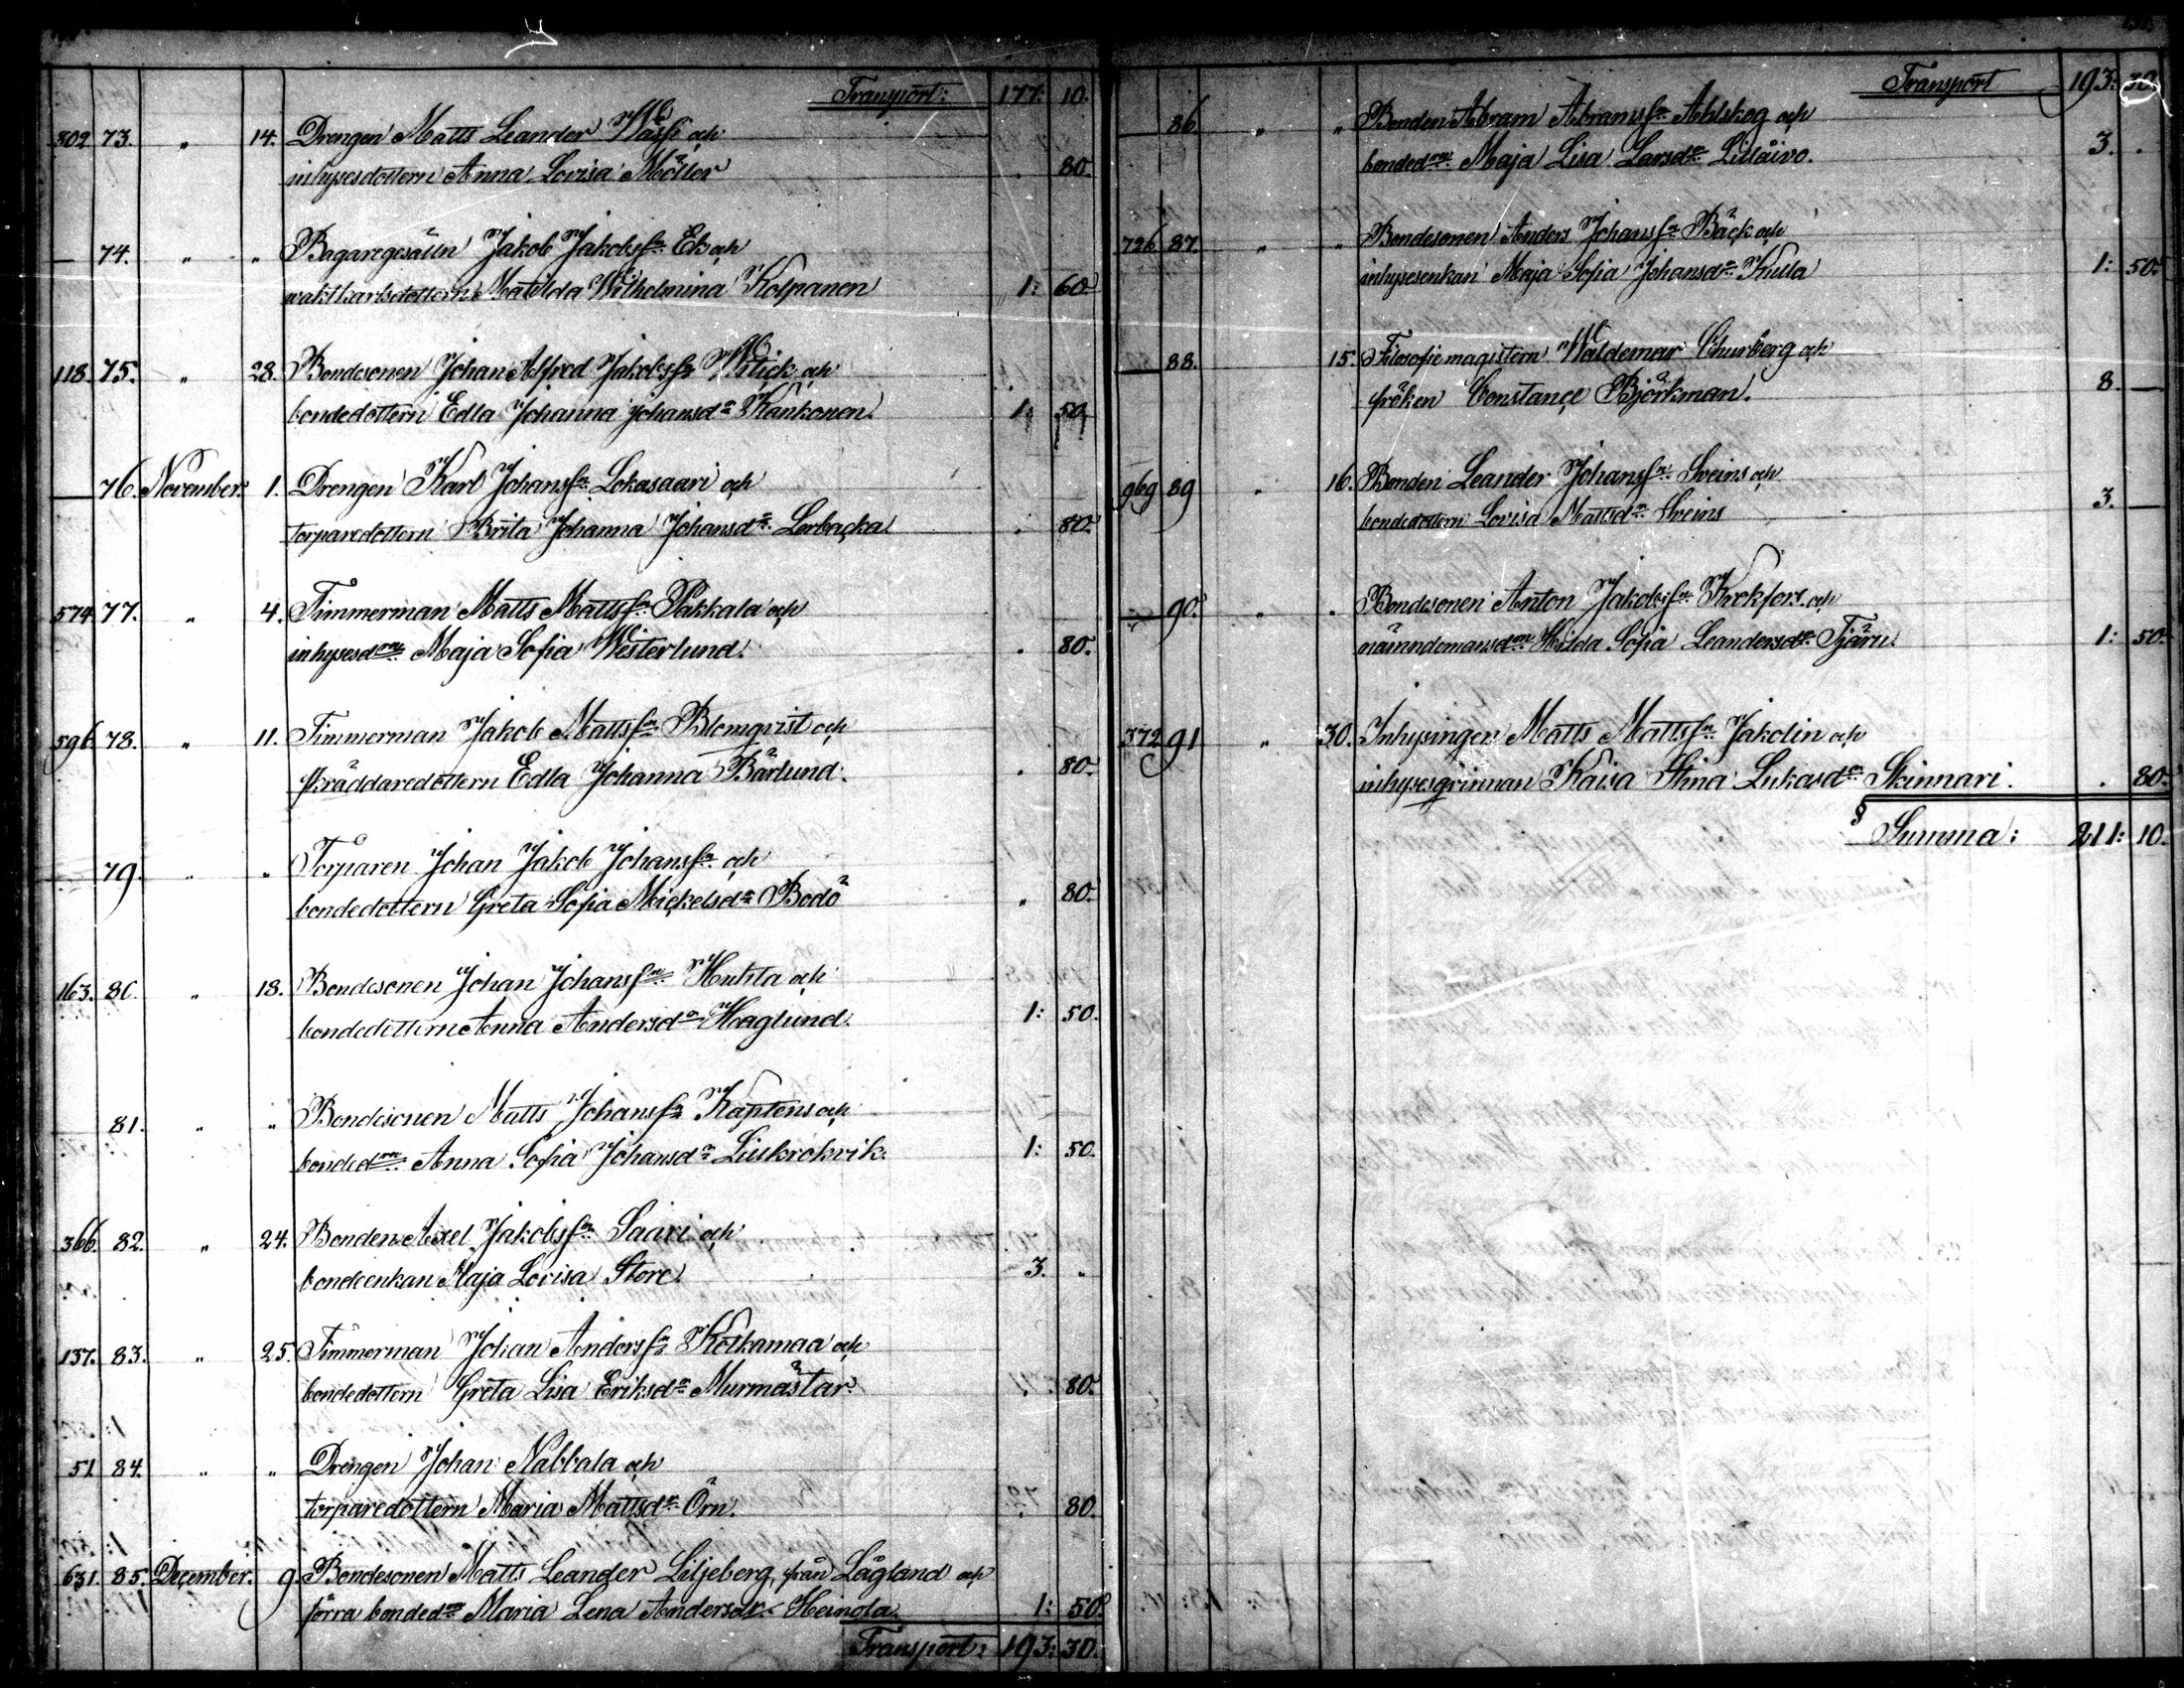 Transport: 177: 10.
302 73. " 14. Drengen Matts Leander Wäsk och
inhysesdottern Anna Lovisa Möller . 80.
— 74. " " Bagaregesälln Jakob Jakobsson Ek och
waktkarlsdottern Matilda Wilhelmina Kolpanen 1: 60.
118. 75. " 28. Bondesonen Johan Alfred Jakobsson och
bondedottern Edla Johanna Johansdr Kankonen. 1. 50.
— 76. November. 1. Drengen Karl Johansson Lokasaari och
torparedottern Brita Johanna Johansdr Lerbacka . 80.
574. 77. " 4. Timmerman Matts Mattsson Pakkala och
inhysesdtrn Maja Sofia Westerlund. . 80.
596. 78. " 11. Timmerman Jakob Mattsson Blomqvist och
skräddaredottern Edla Johanna Bärlund. . 80.
— 79. " " Torparen Johan Jakob Johansson och
bondedottern Greta Sofia Mickelsdr Bodö " 80.
163. 80. " 18. Bondesonen Johan Johansson Huhta och
bondedottern Anna Andersdr Haglund. 1: 50.
81. " " Bondesonen Matts Johansson Kaptens och
bondedtrn Anna Sofia Johansdr Liukrokvik. 1: 50.
366. 82. " 24. Bonden Axel Jakobsson Saari och
bondeenkan Maja Lovisa Store. 3. "
137. 83. " 25. Timmerman Johan Andersson Kolkamaa och
bondedottern Greta Lisa Eriksdr Murmästar. . 80.
51 84. " " Drengen Johan Nabbala och
torparedottern Maria Mattsdr Örn. . 80.
631. 85. December. 9. Bondesonen Matts Leander Liljeberg, från Lågland och
förra bondedtrn Maria Lena Andersdr Heinola. 1: 50.
Transport: 193: 30.
Transport 193: 30.
— 86. " " Bonden Abram Abramsson Ahlskog och
bondedtrn Maja Lisa Larsdr Lillåivo. 3. .
726 87. " " Bondesonen Anders Johansson Bäck och
inhysesenkan Maja Sofia Johansdr Kulla 1: 50.
— 88. 15. Filosofiemagistern Waldemar Churberg och
fröken Constance Björkman. 8. —
969 89 " 16. Bonden Leander Johansson Sveins och
bondedottern Lovisa Mattsdr Sveins 3. —
— 90. " . Bondesonen Anton Jakobsson Krokfors och
nämndemansdtrn Hilda Sofia Leandersdr Tjäru. 1: 50.
372 91 " 30. Inhysingen Matts Mattsson Jakolin och
inhysesqvinnan Kaisa Stina Lukasdr Skinnari. . 80.
Summa: 211: 10.